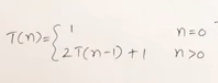 T(n)= { 1 n=0
2T(n-1)+1 n>0